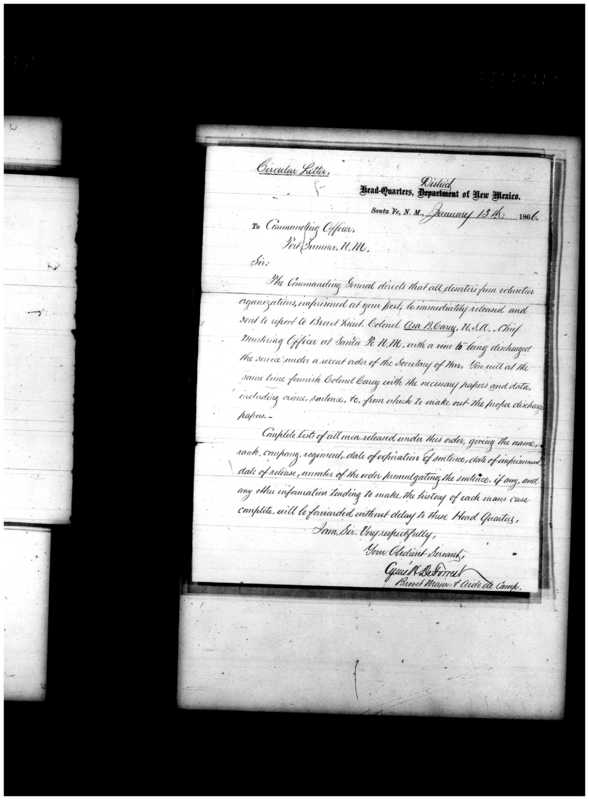 Circular Letter.
District
Head-Quarters, Department of New Mexico.
Santa Fe, N. M., January 13th 1866.
To Commanding Officer,
Fort Sumner, N.M.
Sir:
The Commanding General directs that all deserters from volunteer
organizations, imprisoned at your post, be immediately released and
sent to report to Brevet Lieut. Colonel Asa B. Carey, U.S.A., Chief
Mustering Officer at Santa Fe N.M. with a view to being discharged
the service under a recent order of the Secretary of War. You will at the
same time furnish Colonel Carey with the necessary papers and data,
including crime, sentence, &c, from which to make out the proper discharge
papers.-
Complete lists of all men released under this order, giving the name,
rank, company, regiment, date of expiration of sentence, date of imprisonment
date of release, number of the order promulgating the sentence, if any, and
any other information tending to make the history of each mans case
complete, will be forwarded without delay to these Head Quarters.
I am Sir, Very respectfully,
Your Obedient Servant,
Cyrus H. De Forrest
Brevet Major & Aide de Camp.